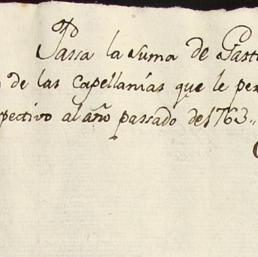 Passa la Suma de Gast
de las Capellanías que le per
pectivo al año passado de 1763..